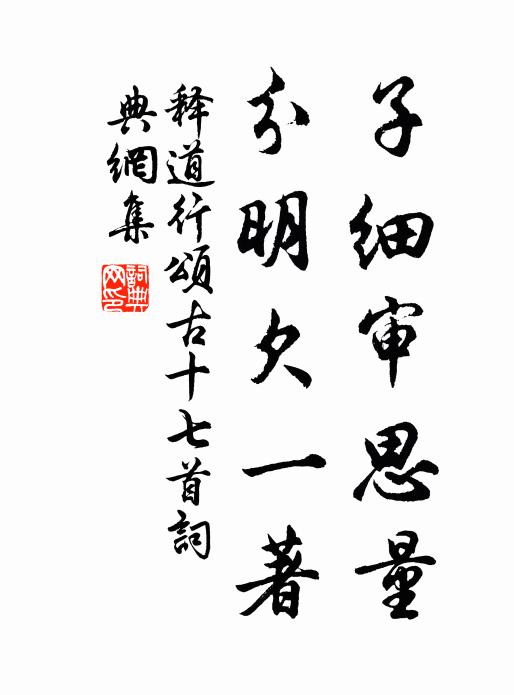 子细审思量
分明欠一著
释道行颂古十七首詞
典網集
詞典网印